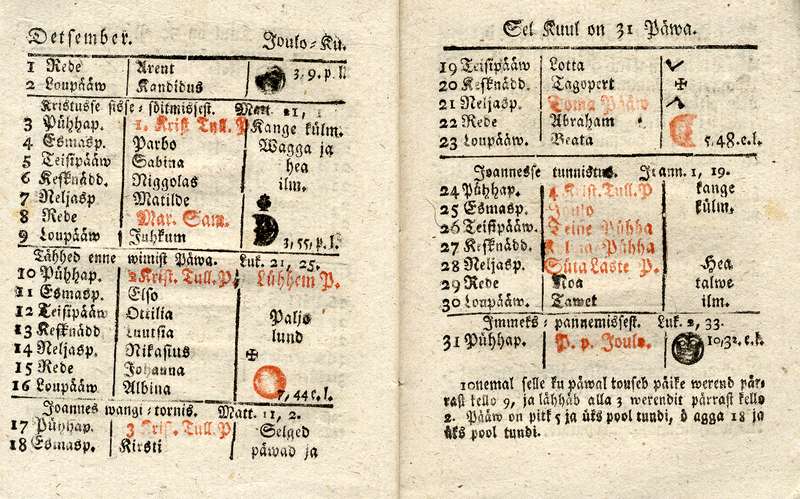 Detsember. Joulo-Ku.
1 Rede Arent 3, 9. p. l.
2 Loupääw Kandidus
Kristusse sisse-sõitmissest. Matt. 21, 1
3 Pühhap. 1. Krist. Tull. P Kange külm.
4 Esmasp. Parbo Wagga ja
5 Teisipääw Sabina hea
6 Kesknädd. Niggolas ilm.
7 Neljasp. Matilde
8 Rede Mar. Sam.
9 Loupääw Juhkum 3, 55, p. l.
Tähhed enne wimist Päwa. Luk. 21, 25.
10 Pühhap. 2 Krist. Tull. P. Lühhem P.
11 Esmasp. Elso
12 Teisipääw Ottilia Paljo
13 Kesknädd Luutsia lund
14 Neljasp. Nikasius ✠
15 Rede Johanna
16 Loupääw Albina 7, 44 e. l.
Joannes wangi-tornis. Matt. 11, 2.
17 Pühhap. 3 Krist. Tull. P Selged
18 Esmasp. Kirsti päwad ja
Sel Kuul on 31 Päwa.
19 Teisipääw Lotta
20 Kesknädd. Tagopert ✠
21 Neljasp. Toma Pääw
22 Rede Abraham
23 Loupääw. Beata 5, 48. e. l.
Joannesse tunnistus. Joann. 1, 19.
24 Pühhap. 4 Krist. Tull. P kange
25 Esmasp. Joulo külm.
26 Teisipääw. Teine Pühha
27 Kesknädd. Kolmas Pühha
28 Neljasp. Süta Laste P. Hea
29 Rede Noa talwe
30 Loupääw. Tawet ilm.
Immeks-pannemissest. Luk. 2, 33.
31 Pühhap. P. p. Joulo. 10, 32. e. k.
10nemal selle ku päwal touseb päike werend pär-
rast kello 9, ja lähhäb alla 3 werendit pärrast kello
2. Pääw on pitk 5 ja üks pool tundi, ö agga 18 ja
üks pool tundi.